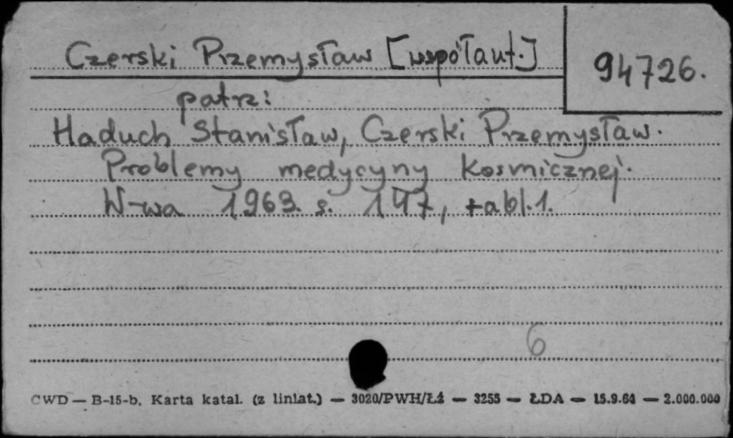 Czerski Przemysław [współaut.]
94726.
patrz:
Haduch Stanisław, Czerski Przemysław.
Problemy medycyny kosmicznej.
W-wa 1963. s. 147, tabl. 1.
6
CWD — B-15-b. Karta katal. (z liniat.) — 3020/PWH/Łż — 3255 — ŁDA — 15.9.64 — 2.000.000